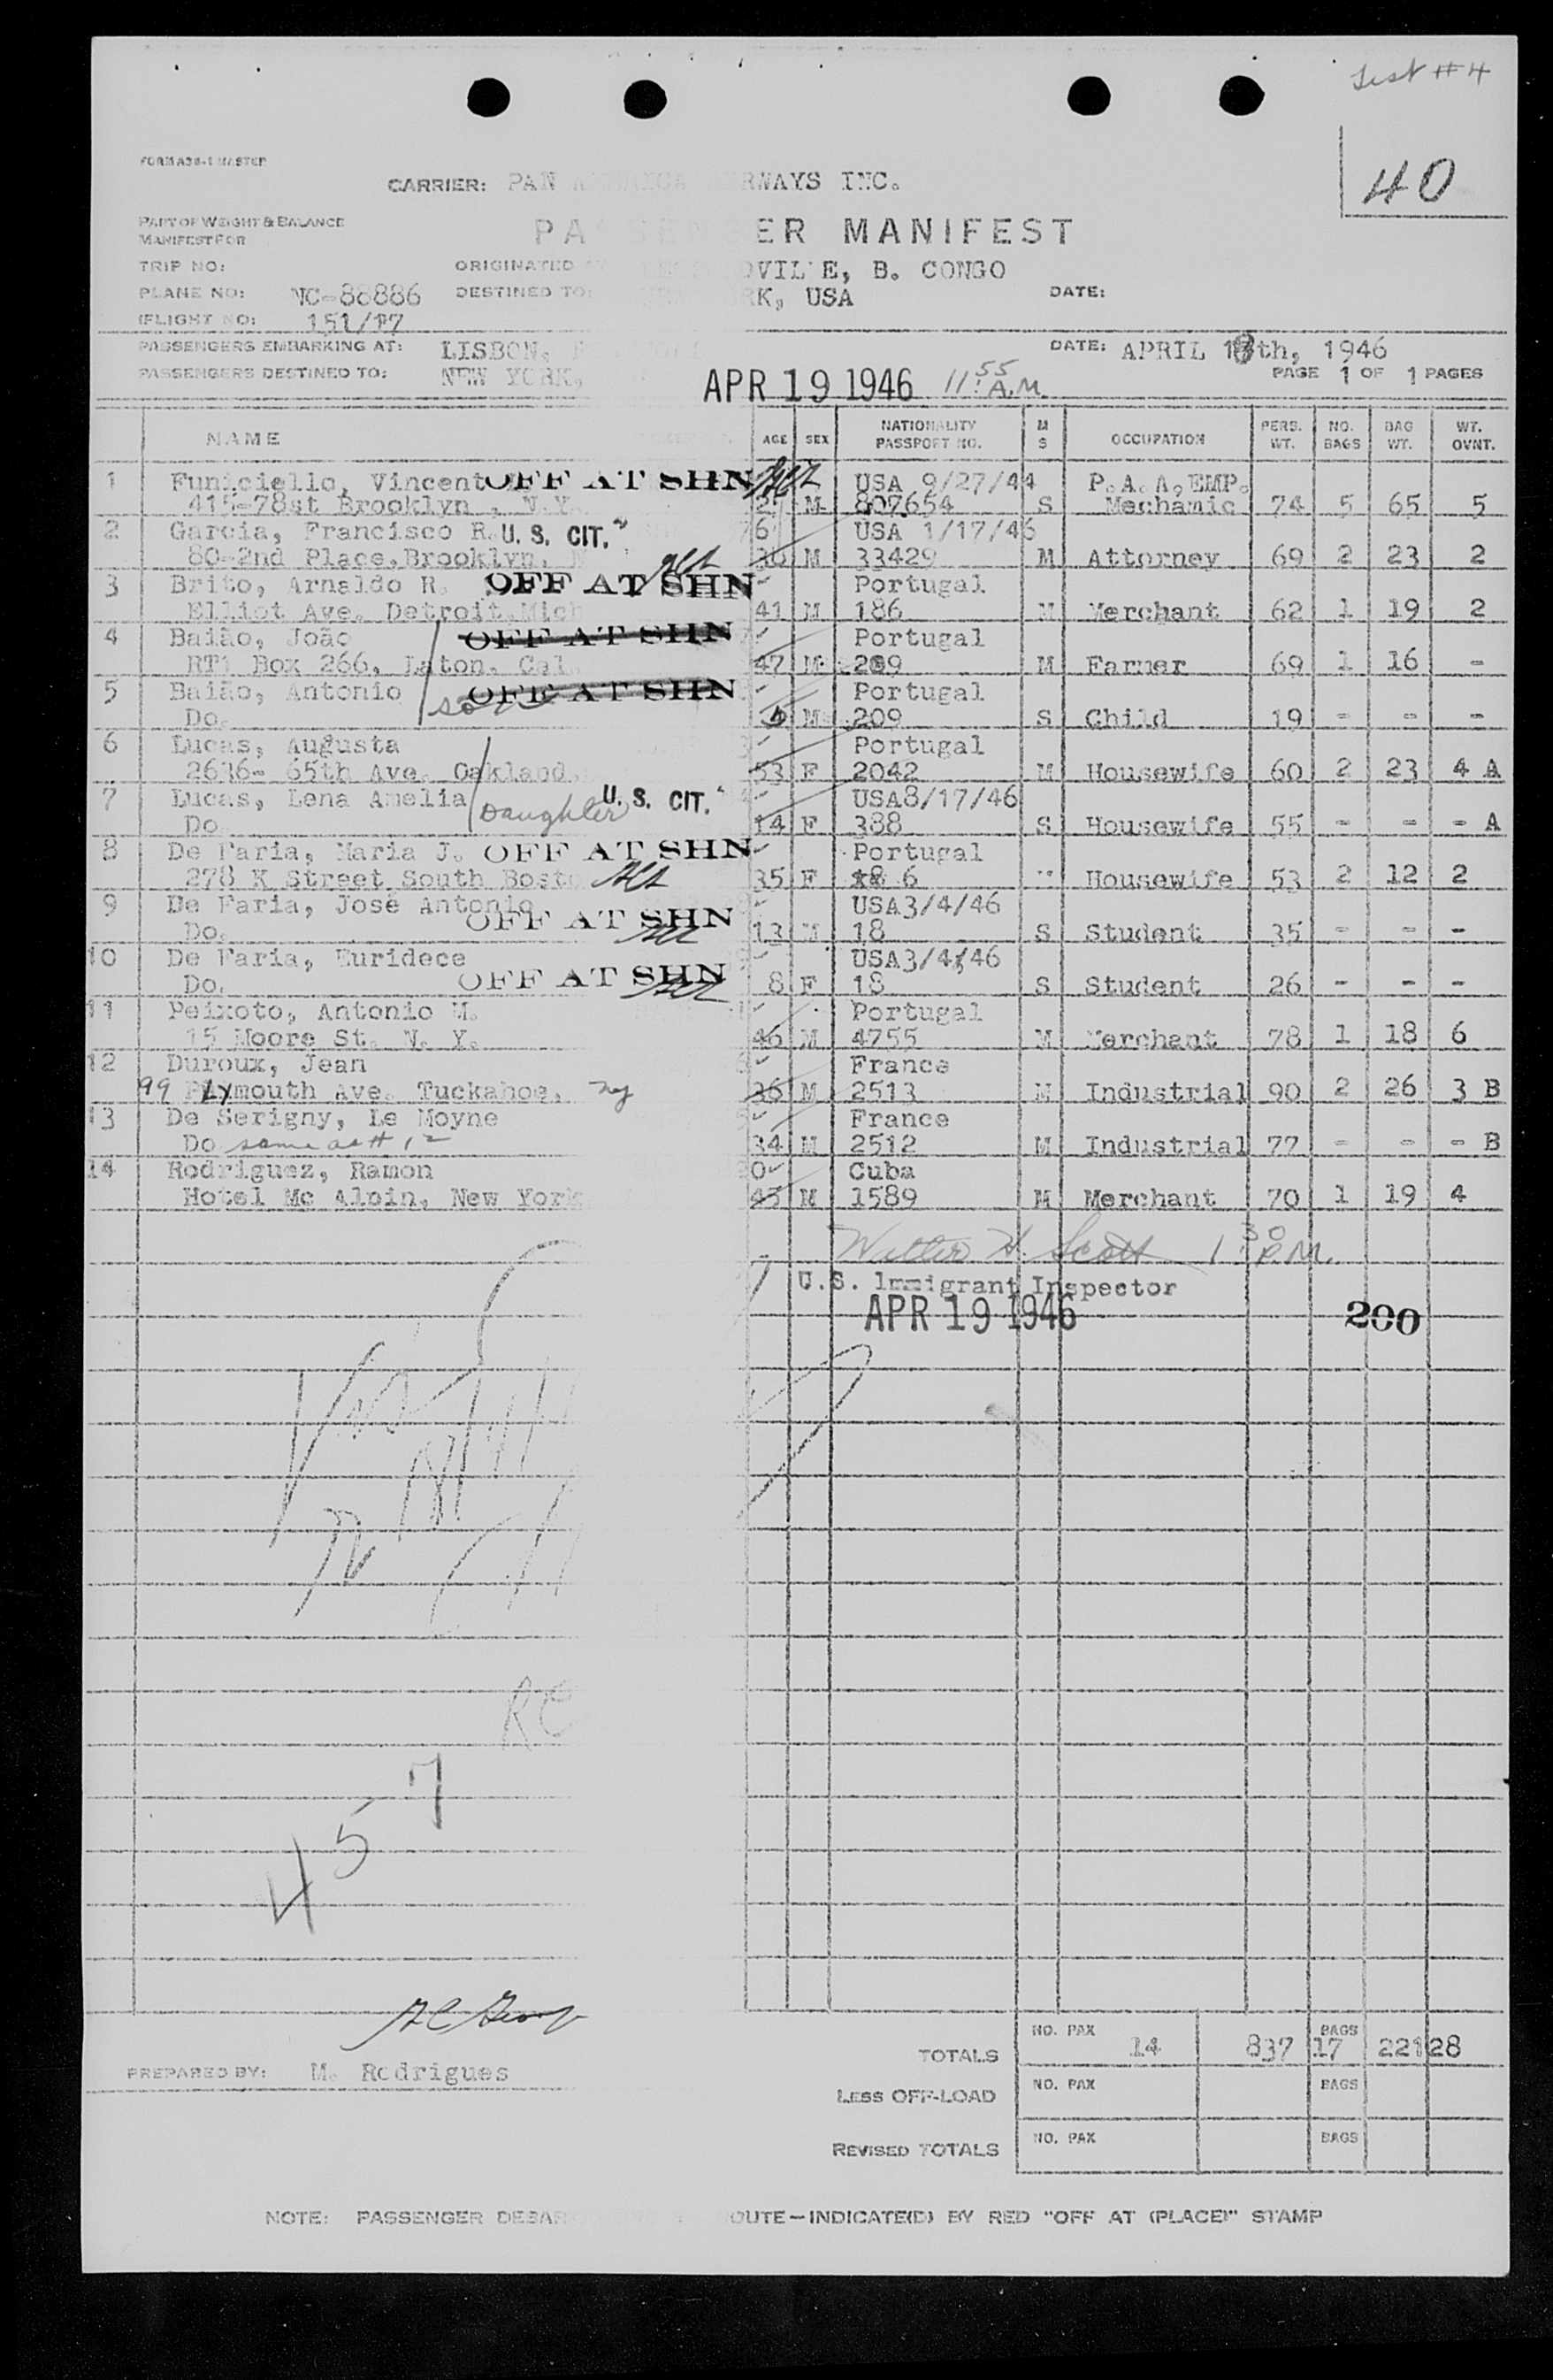 List #4
40
FORM A30-1 MASTER
CARRIER: PAN AMERICA AIRWAYS INC.
PART OF WEIGHT & BALANCE
MANIFEST FOR
PASSENGER MANIFEST
TRIP NO: ORIGINATED DVILLE, B. CONGO
PLANE NO: NC-88886 DESTINED TO: RK, USA DATE:
FLIGHT NO: 151/17
PASSENGERS EMBARKING AT: LISBON, DATE: APRIL 18th, 1946
PASSENGERS DESTINED TO: NEW YORK, PAGE 1 OF 1 PAGES
APR 19 1946 11:55 A.M.
NAME AGE SEX NATIONALITY PASSPORT NO. M S OCCUPATION PERS. WT. NO. BAGS BAG WT. WT. OVNT.
1 Funiciello, Vincent OFF AT SHN USA 9/27/44 P.A.A. EMP.
415-78st Brooklyn, N.Y. M 807654 S Mechanic 74 5 65 5
2 Garcia, Francisco R. U. S. CIT. 6 USA 1/17/46
80-2nd Place, Brooklyn, 36 M 33429 M Attorney 69 2 23 2
3 Brito, Arnaldo R. OFF AT SHN Portugal
Elliot Ave. Detroit, Mich 41 M 186 M Merchant 62 1 19 2
4 Baião, João OFF AT SHN Portugal
RT1 Box 266, Laton, Cal. 47 M 209 M Farmer 69 1 16 -
5 Baião, Antonio OFF AT SHN Portugal
Do. son M 209 S Child 19 - - -
6 Lucas, Augusta Portugal
2636- 65th Ave. Oakland, 53 F 2042 M Housewife 60 2 23 4 A
7 Lucas, Lena Amelia Daughter U. S. CIT. USA8/17/46
Do 14 F 388 S Housewife 55 - - - A
8 De Faria, Maria J. OFF AT SHN Portugal
278 K Street South Bosto 35 F 6 Housewife 53 2 12 2
9 De Faria, Jose Antonio OFF AT SHN USA3/4/46
Do. 13 M 18 S Student 35 - - -
10 De Faria, Euridece OFF AT SHN USA3/4/46
Do. 8 F 18 S Student 26 - - -
11 Peixoto, Antonio M. Portugal
15 Moore St. N. Y. 46 M 4755 M Merchant 78 1 18 6
12 Duroux, Jean France
99 Plymouth Ave. Tuckahoe, NY 36 M 2513 M Industrial 90 2 26 3 B
13 De Serigny, Le Moyne France
Do same as # 12 34 M 2512 M Industrial 77 - - - B
14 Rodriguez, Ramon Cuba
Hotel Mc Alpin, New York 43 M 1589 M Merchant 70 1 19 4
Walter H. Scott 1:30 P.M.
U.S. Immigrant Inspector
APR 19 1946 200
7
5
4
PREPARED BY: M. Rodrigues
TOTALS NO. PAX 14 837 BAGS 17 221 28
LESS OFF-LOAD NO. PAX BAGS
REVISED TOTALS NO. PAX BAGS
NOTE: PASSENGER DEBAR OUTE-INDICATE(D) BY RED "OFF AT (PLACE)" STAMP